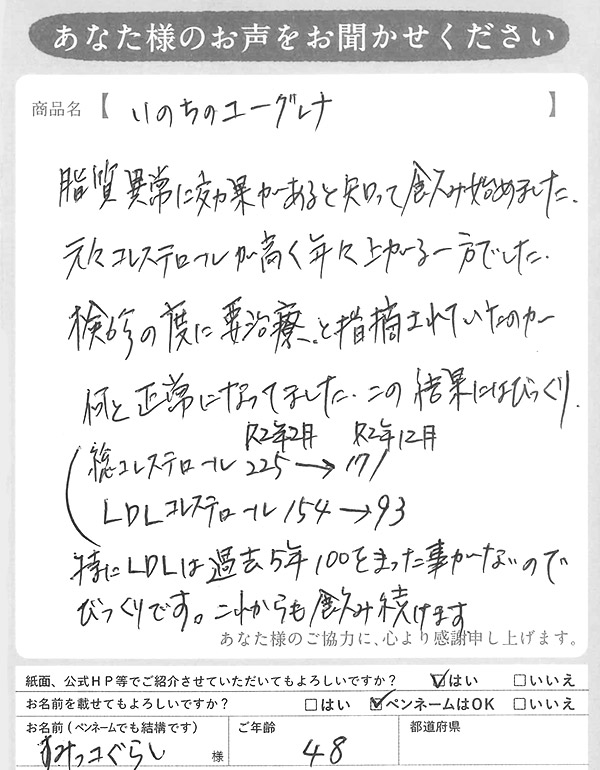 あなた様のお声をお聞かせください
商品名【 いのちのユーグレナ 】
脂質異常に効果があると知って飲み始めました.
元々コレステロールが高く年々上がる一方でした.
検診の度に要治療、と指摘されていたのが
何と正常になってました.この結果にはびっくり.
R2年2月 R2年12月
総コレステロール 225→171
LDLコレステロール 154→93
特にLDLは過去5年100をきった事がないので
びっくりです。これからも飲み続けます
あなた様のご協力に、心より感謝申し上げます。
紙面、公式HP等でご紹介させていただいてもよろしいですか? ☑はい □いいえ
お名前を載せてもよろしいですか? □はい ☑ペンネームはOK □いいえ
お名前(ペンネームでも結構です) ご年齢 都道府県
すみっコぐらし 様 48